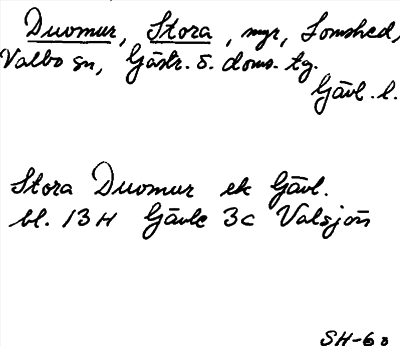 Duomur, Stora, myr, Lomshed,
Valbo sn, Gästr. ö. doms. tg.
Gävl. l.
Stora Duomur ek Gävl.
bl. 13H Gävle 3c Valsjön
SH-68